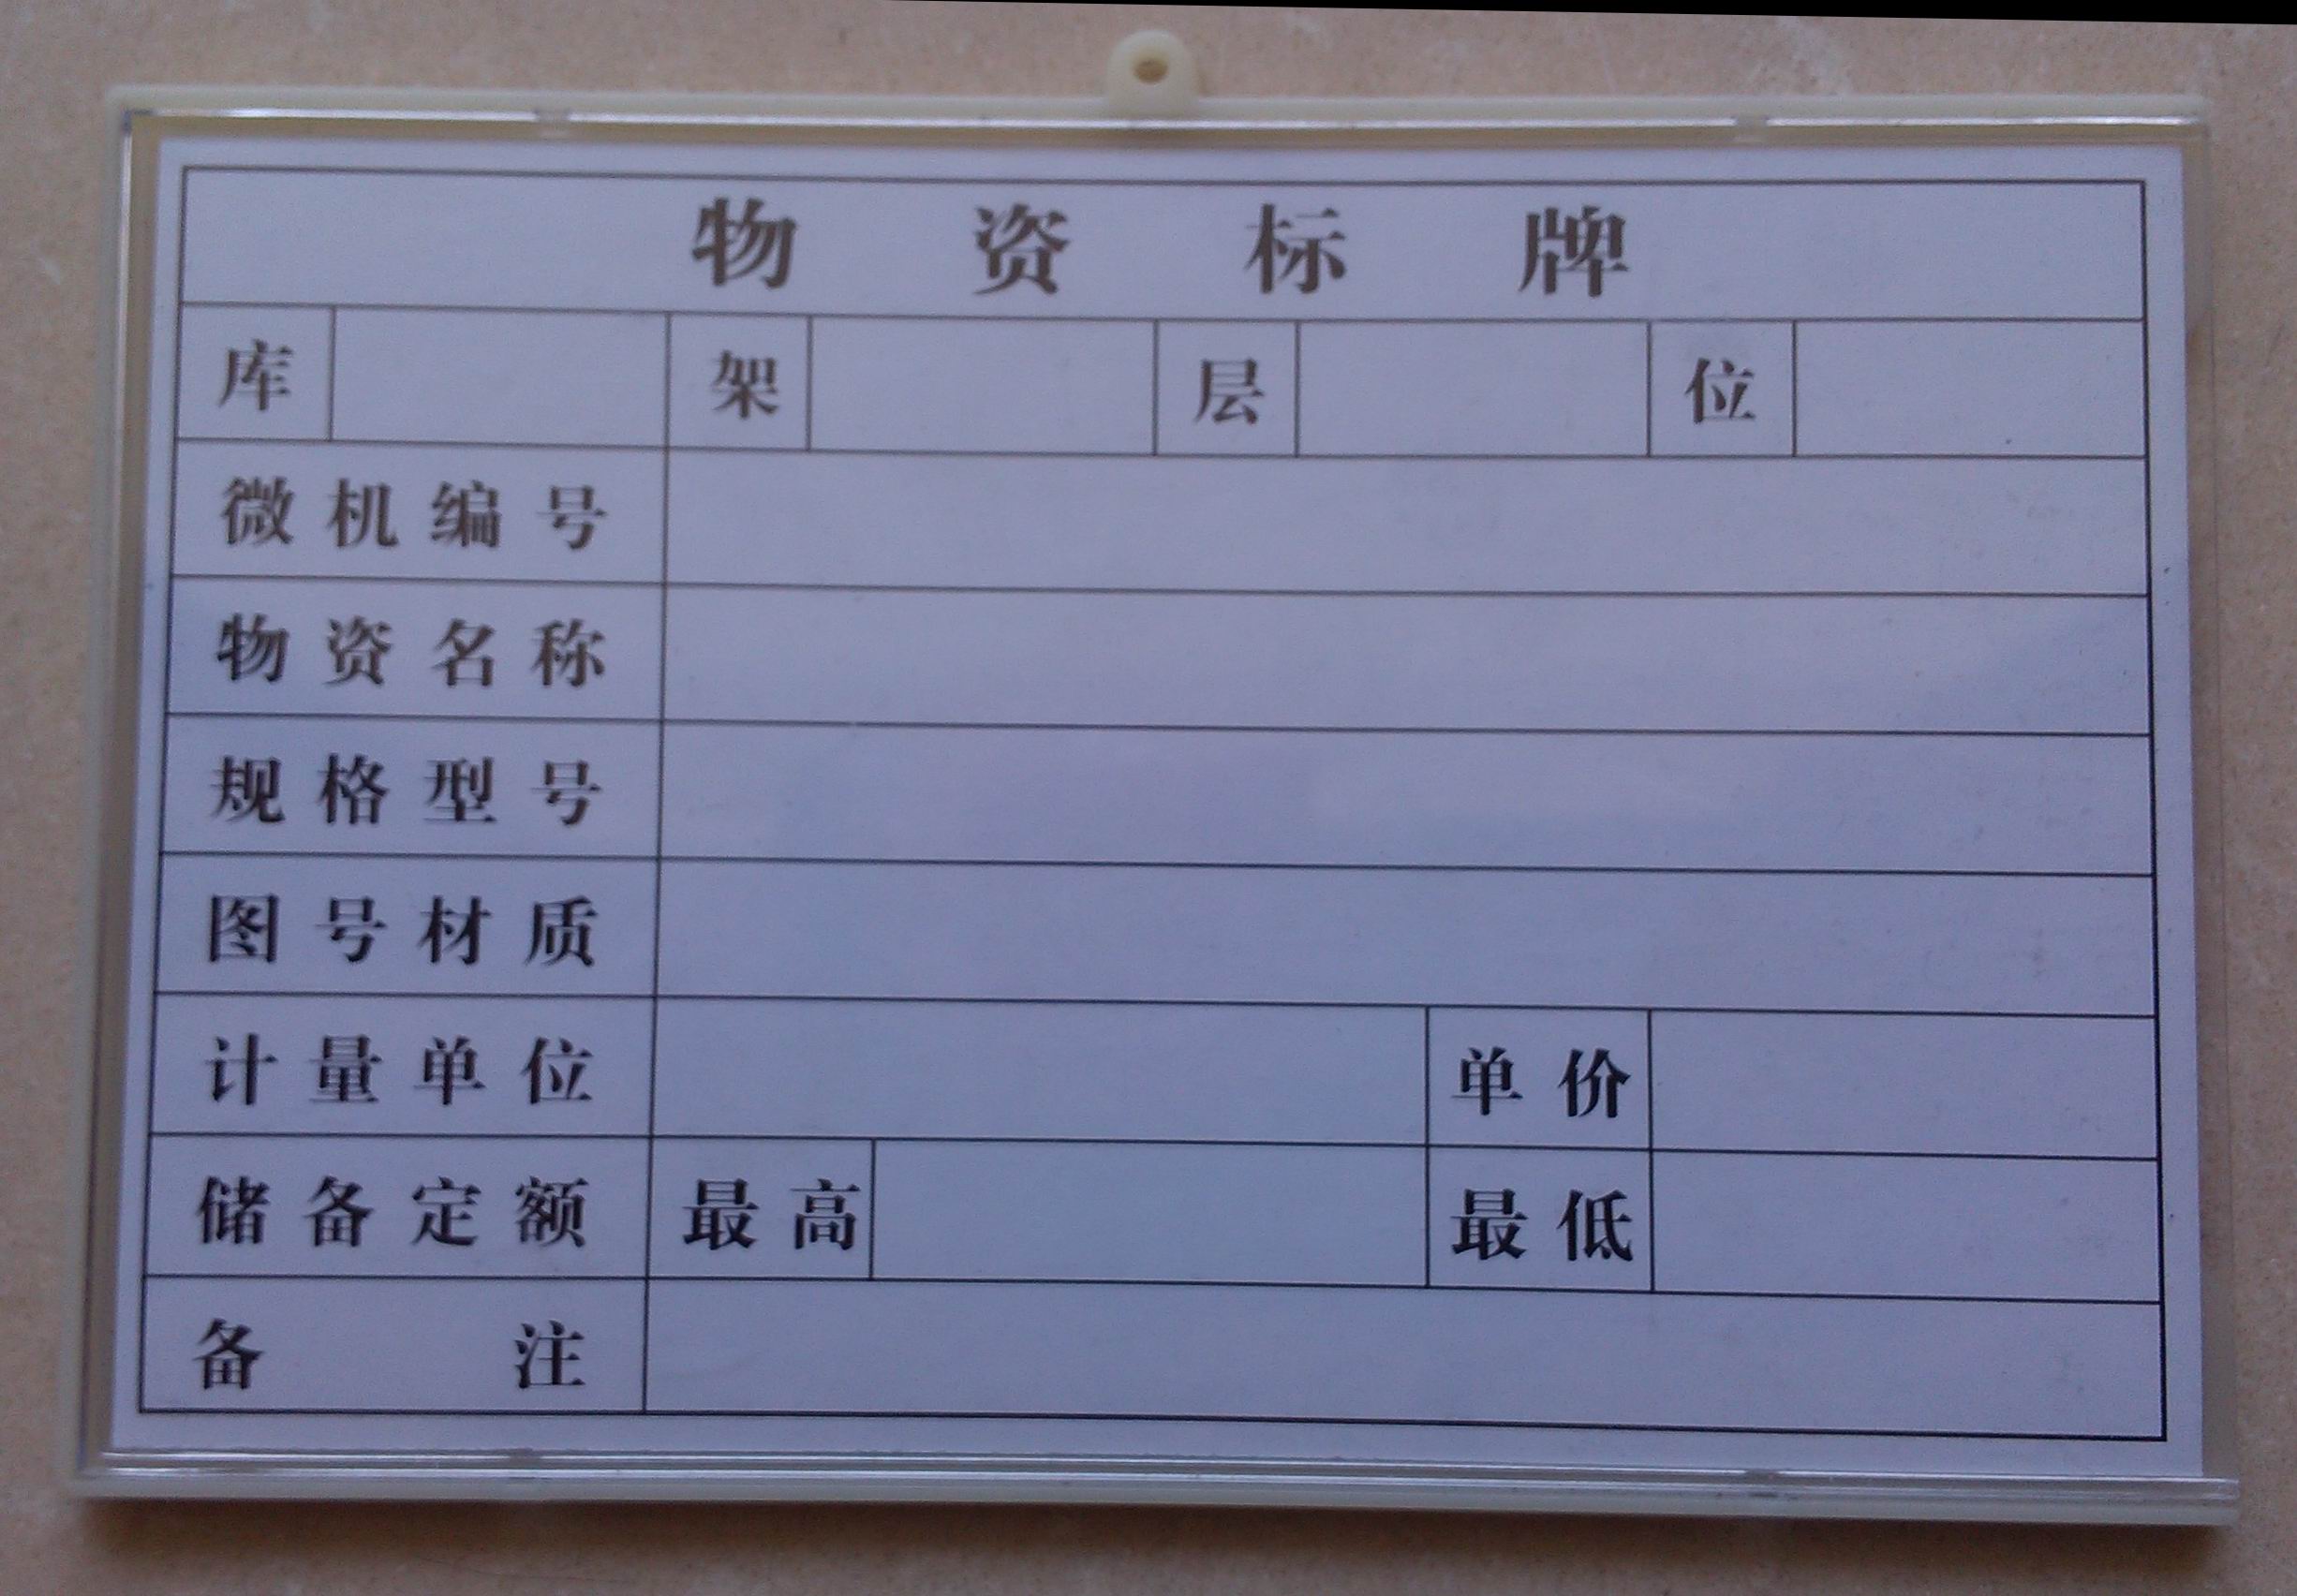 物资标牌
库 架 层 位
微机编号
物资名称
规格型号
图号材质
计量单位 单价
储备定额 最高 最低
备注